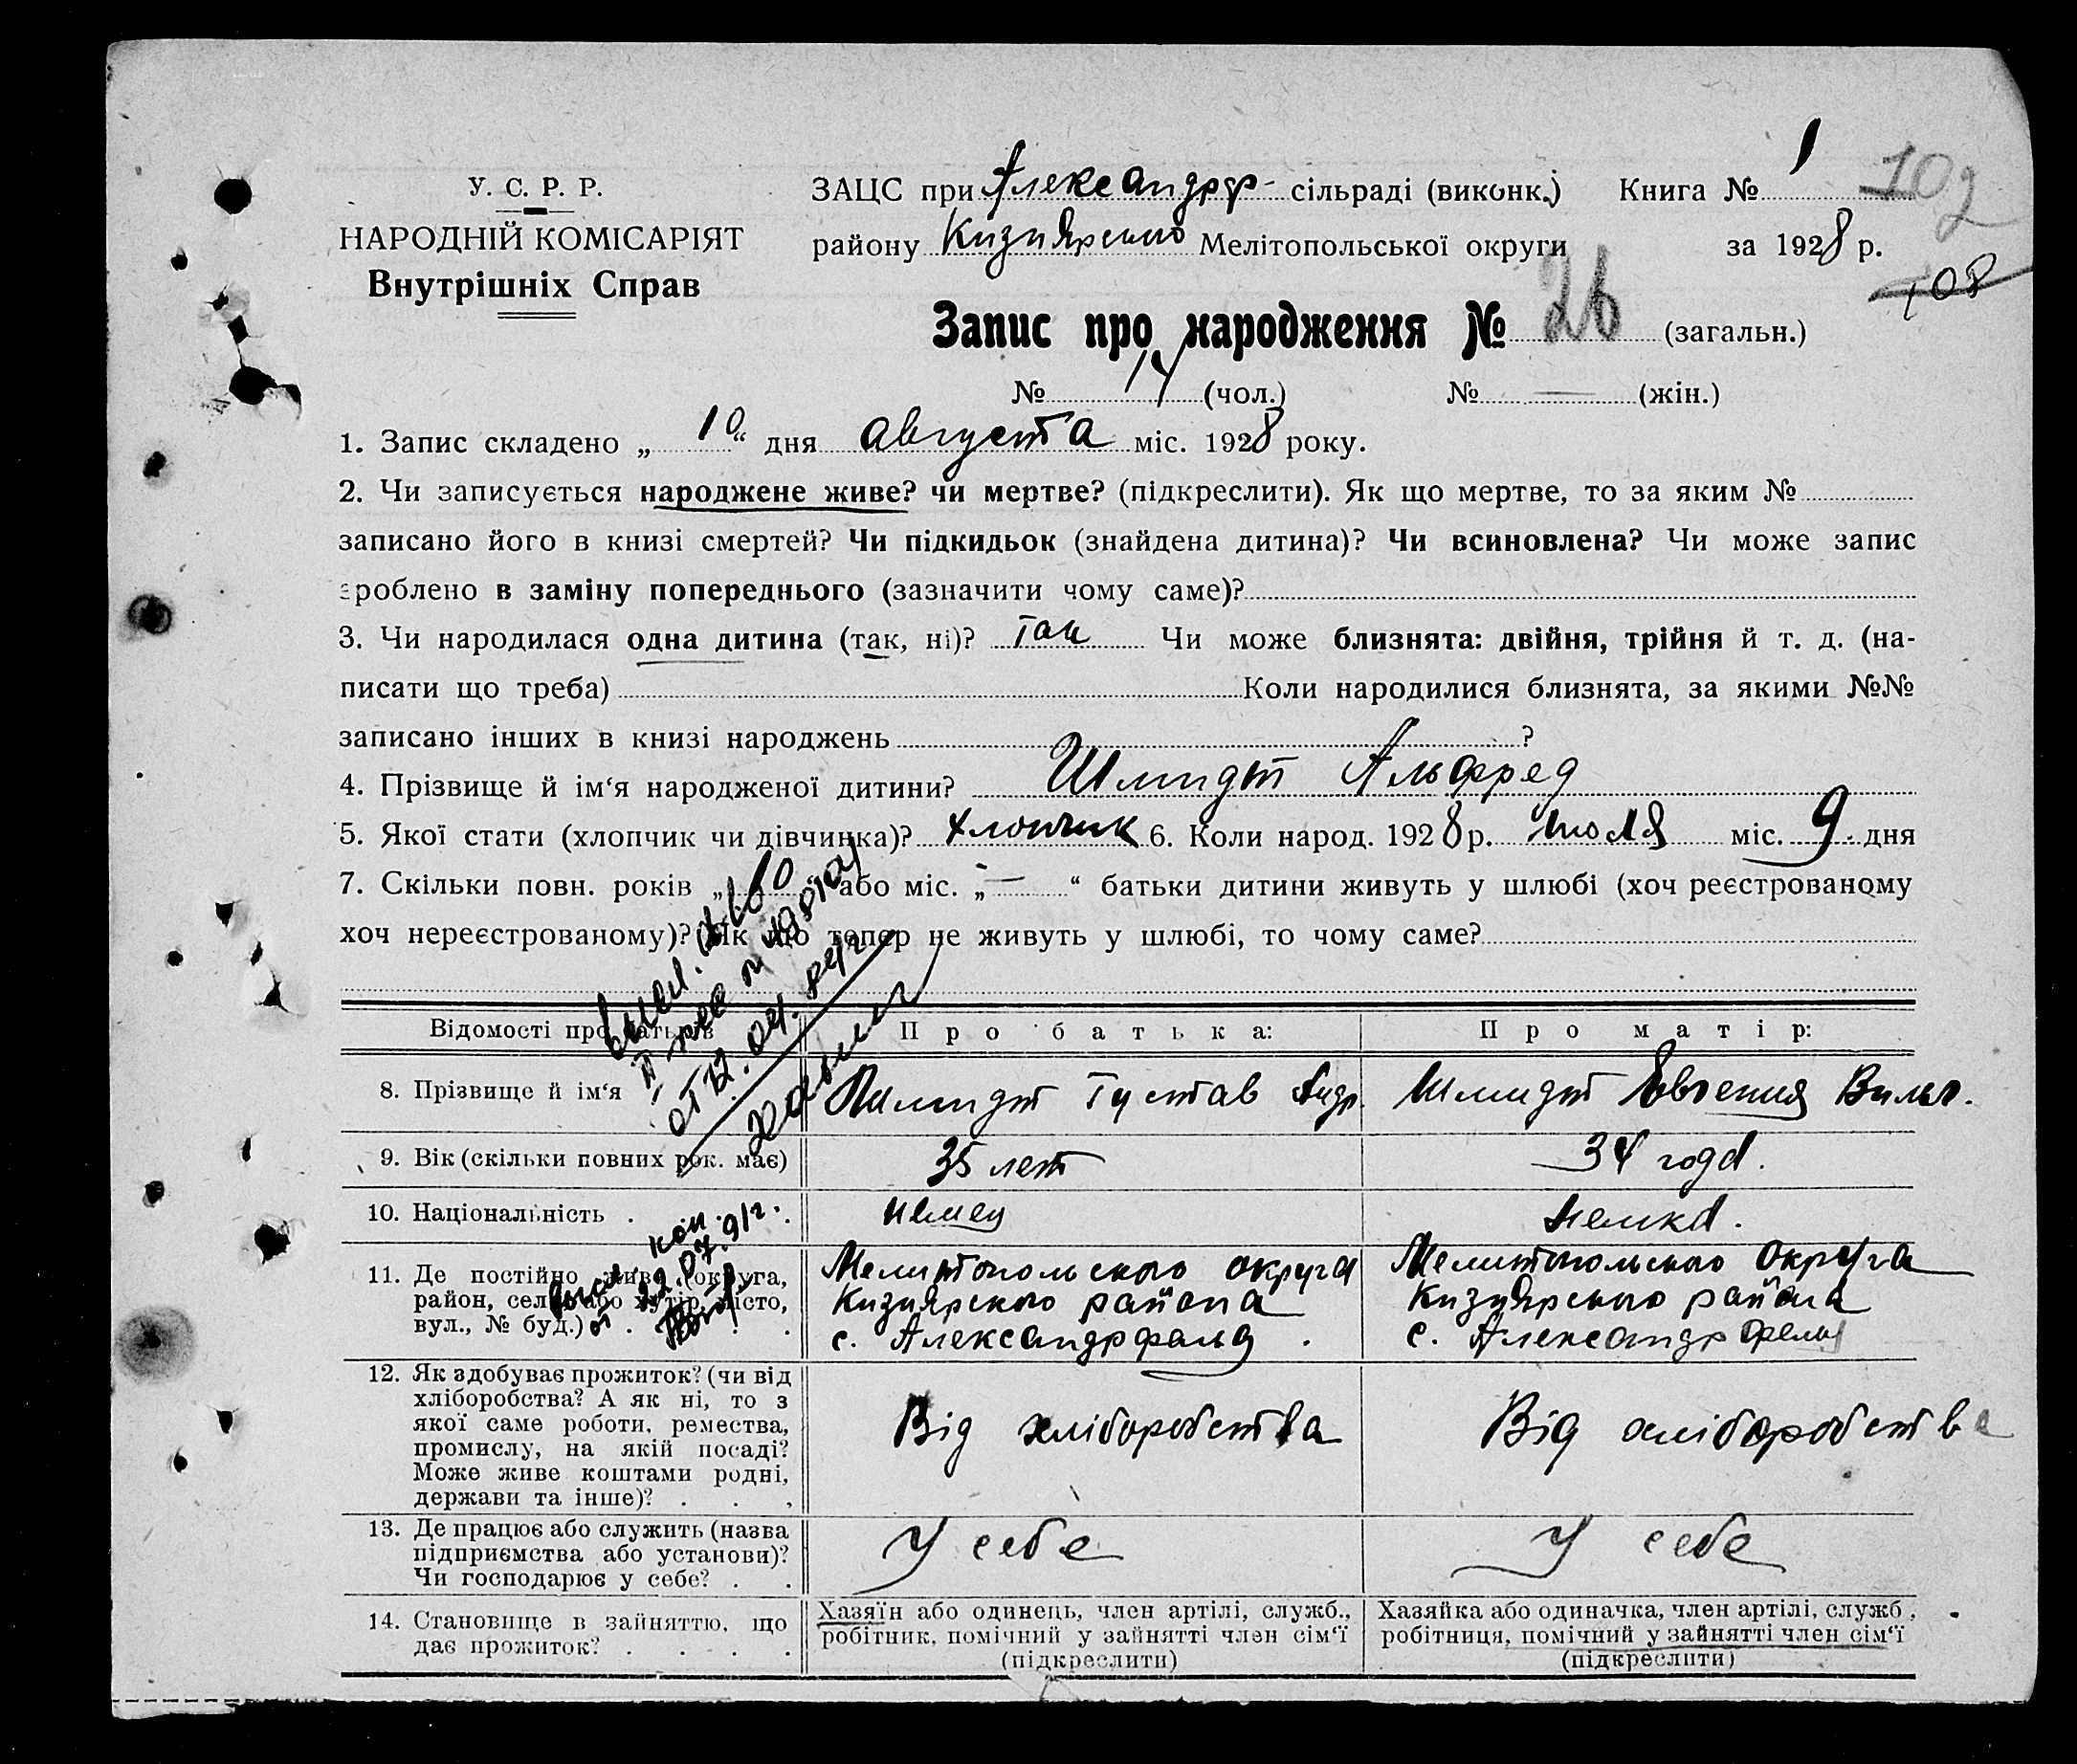 У. С. Р. Р.
НАРОДНІЙ КОМІСАРІЯТ
Внутрішніх Справ
ЗАЦС при Александрф- сільраді (виконк.) Книга № 1
102
району Кизиярского Мелітопольської округи за 1928 р.
108
Запис про народження № 26 (загальн.)
№ 14 (чол.) № — (жін.)
1. Запис складено „ 10 “ дня августа міс. 1928 року.
2. Чи записується народжене живе? чи мертве? (підкреслити). Як що мертве, то за яким №
записано його в книзі смертей? Чи підкидьок (знайдена дитина)? Чи всиновлена? Чи може запис
зроблено в заміну попереднього (зазначити чому саме)?
3. Чи народилася одна дитина (так, ні)? Так Чи може близнята: двійня, трійня й т. д. (на-
писати що треба) Коли народилися близнята, за якими №№
записано інших в книзі народжень ?
4. Прізвище й ім‘я народженої дитини? Шмидт Альфред
5. Якої стати (хлопчик чи дівчинка)? хлопчик 6. Коли народ. 1928 р. июля міс. 9 дня
7. Скільки повн. років „ 10 “ або міс. „ — “ батьки дитини живуть у шлюбі (хоч реєстрованому
хоч нереєстрованому)? Як що тепер не живуть у шлюбі, то чому саме?
Відомості про батьків
П р о б а т ь к а:
П р о м а т і р:
8. Прізвище й ім‘я
Шмидт Густав Андр.
Шмидт Евгения Вильг.
9. Вік (скільки повних рок. має)
35 лет
34 года.
10. Національність .
немец
немка.
11. Де постійно живе (округа,
район, село або хутір, місто,
вул., № буд.)
Мелитопольского округа
Кизиярского района
с. Александрфельд.
Мелитопольского округа
Кизиярского района
с. Александрфельд
12. Як здобуває прожиток? (чи від
хліборобства? А як ні, то з
якої саме роботи, ремества,
промислу, на якій посаді?
Може живе коштами родні,
держави та інше)? .
Від хліборобства
Від хліборобства
13. Де працює або служить (назва
підприємства або установи)?
Чи господарює у себе? .
У себе
У себе
14. Становище в зайняттю, що
дає прожиток? .
Хазяїн або одинець, член артілі, служб.,
робітник, помічний у зайнятті член сім‘ї
(підкреслити)
Хазяйка або одиначка, член артілі, служб.,
робітниця, помічний у зайнятті член сім‘ї
(підкреслити)
от 22.07.91г.